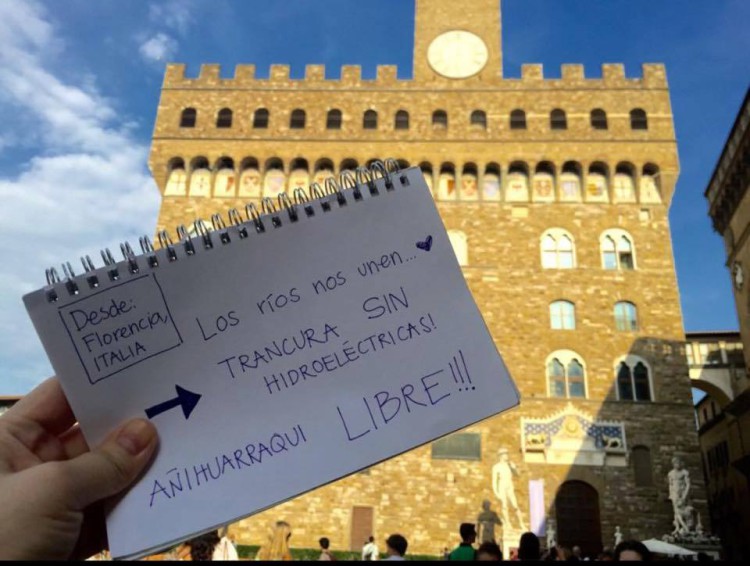 Desde:
Florencia,
ITALIA
Los ríos nos unen...
TRANCURA SIN
HIDROELÉCTRICAS!
AÑIHUARRAQUI LIBRE!!!